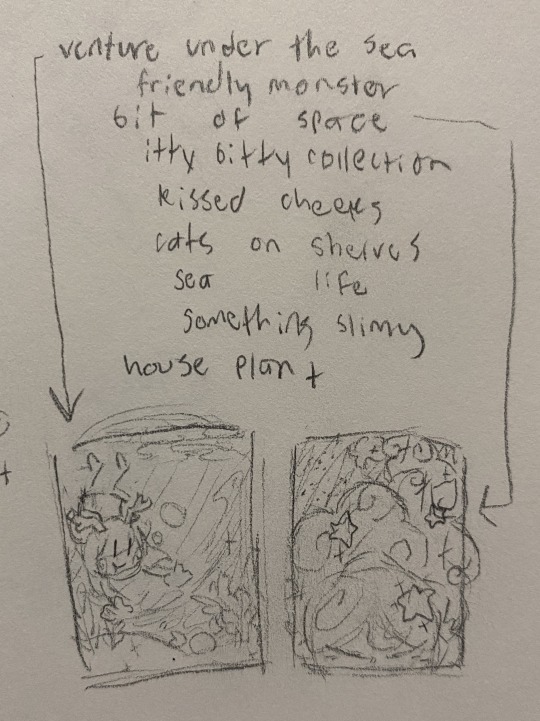 venture under the sea
friendly monster
bit of space
itty bitty collection
kissed cheeks
cats on shelves
sea life
something slimy
house plant